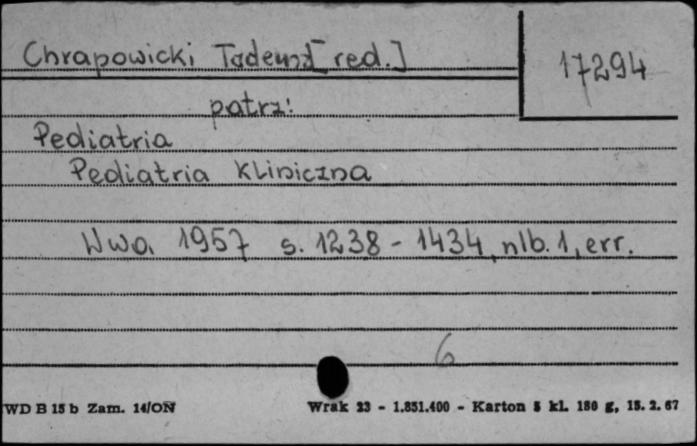 Chrapowicki Tadeusz [red.]
17294
patrz:
Pediatria
Pediatria kliniczna
Wwa. 1957 s. 1238 - 1434, nlb. 1, err.
6
WD B 15 b Zam. 14/ON
Wrak 23 - 1.851.400 - Karton 5 kl. 180 g, 15. 2. 67